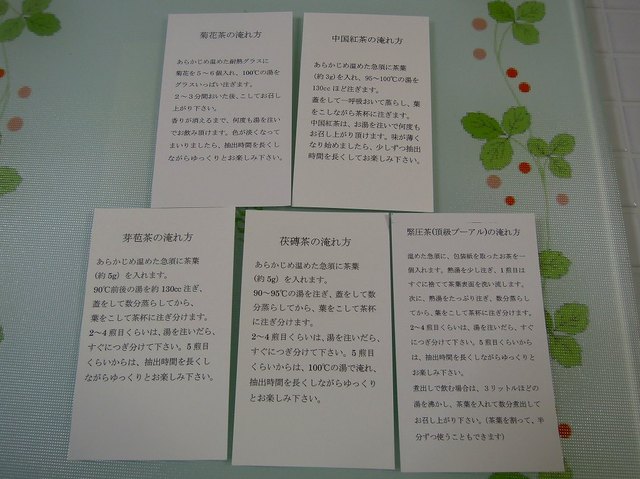 菊花茶の淹れ方
あらかじめ温めた耐熱グラスに
菊花を5～6個入れ、100℃の湯を
グラスいっぱい注ぎます。
2～3分間おいた後、こしてお召し
上がり下さい。
香りが消えるまで、何度も湯を注い
でお飲み頂けます。色が淡くなって
まいりましたら、抽出時間を長くし
ながらゆっくりとお楽しみ下さい。
中国紅茶の淹れ方
あらかじめ温めた急須に茶葉
(約3g)を入れ、95～100℃の湯を
130ccほど注ぎます。
蓋をして一呼吸おいて蒸らし、葉
をこしながら茶杯に注ぎます。
中国紅茶は、お湯を注いで何度も
お召し上がり頂けます。味が薄く
なり始めましたら、少しずつ抽出
時間を長くしてお楽しみ下さい。
芽苞茶の淹れ方
あらかじめ温めた急須に茶葉
(約5g) を入れます。
90℃前後の湯を約130cc注ぎ、
蓋をして数分蒸らしてから、
葉をこして茶杯に注ぎます。
2～4煎目くらいは、湯を注いだら、
すぐにつぎ分けて下さい。5煎目
くらいからは、抽出時間を長くし
ながらゆっくりとお楽しみ下さい。
茯磚茶の淹れ方
あらかじめ温めた急須に茶葉
(約5g) を入れます。
90～95℃の湯を注ぎ、蓋をして数
分蒸らしてから、葉をこして茶杯
に注ぎ分けます。
2～4煎目くらいは、湯を注いだら、
すぐにつぎ分けて下さい。5煎目
くらいからは、100℃の湯で淹れ、
抽出時間を長くしながらゆっくり
とお楽しみ下さい。
緊圧茶(頂級プーアル)の淹れ方
温めた急須に、包装紙を取ったお茶を一
個入れます。熱湯を少し注ぎ、1煎目は
すぐに捨てて茶葉表面を洗い流します。
次に、熱湯をたっぷり注ぎ、数分蒸らし
てから、葉をこして茶杯に注ぎ分けます。
2～4煎目くらいは、湯を注いだら、すぐ
につぎ分けて下さい。5煎目くらいから
は、抽出時間を長くしながらゆっくりと
お楽しみ下さい。
煮出しで飲む場合は、3リットルほどの
湯を沸かし、茶葉を入れて数分煮出して
お召し上がり下さい。(茶葉を割って、半
分ずつ使うこともできます)